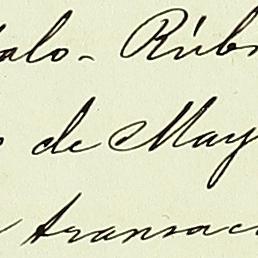 talo - Rúb
de May
transac